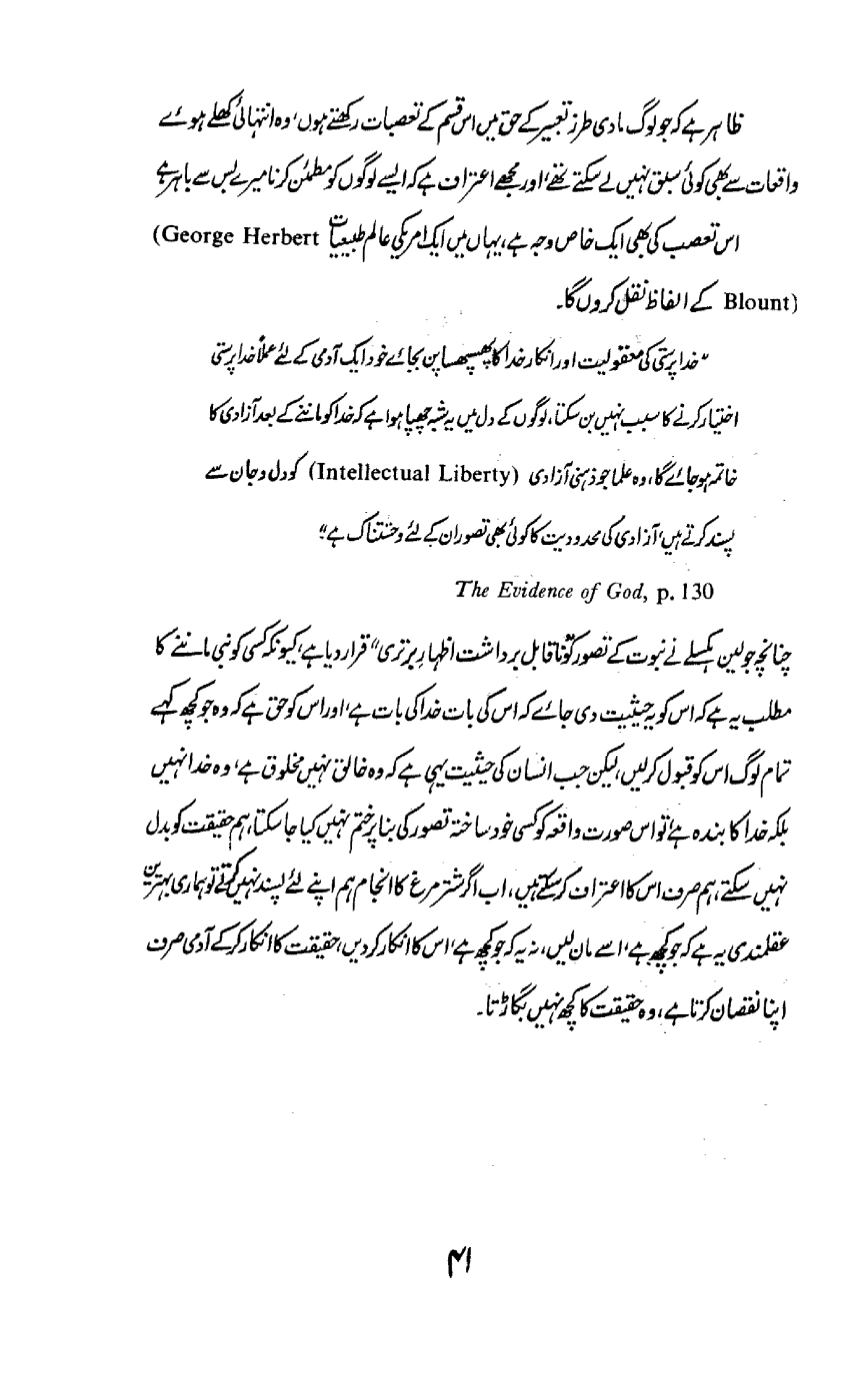 ظاہر ہے کہ جو لوگ مادی طرز تعبیر کے حق میں اس قسم کے تعصبات رکھتے ہوں، وہ انتہائی کھلے ہوئے
واقعات سے بھی کوئی سبق نہیں لے سکتے تھے، اور مجھے اعتراف ہے کہ ایسے لوگوں کو مطمئن کرنا میرے بس سے باہر ہے
اس تعصب کی بھی ایک خاص وجہ ہے، یہاں میں ایک امریکی عالم طبیعیات (George Herbert
Blount) کے الفاظ نقل کروں گا۔
"خدا پرستی کی معقولیت اور انکار خدا کا پھسپھسا پن بجائے خود ایک آدمی کے لئے عملاً خدا پرستی
اختیار کرنے کا سبب نہیں بن سکتا، لوگوں کے دل میں یہ شبہ چھپا ہوا ہے کہ خدا کو ماننے کے بعد آزادی کا
خاتمہ ہو جائے گا، وہ علما جو ذہنی آزادی (Intellectual Liberty) کو دل و جان سے
پسند کرتے ہیں، آزادی کی محدودیت کا کوئی بھی تصور ان کے لئے وحشتناک ہے"
The Evidence of God, p. 130
چنانچہ جولین ہکسلے نے نبوت کے تصور کو "ناقابل برداشت اظہار برتری" قرار دیا ہے، کیونکہ کسی کو نبی ماننے کا
مطلب یہ ہے کہ اس کو یہ حیثیت دی جائے کہ اس کی بات خدا کی بات ہے، اور اس کو حق ہے کہ وہ جو کچھ کہے
تمام لوگ اس کو قبول کر لیں، لیکن جب انسان کی حیثیت یہی ہے کہ وہ خالق نہیں مخلوق ہے، وہ خدا نہیں
بلکہ خدا کا بندہ ہے، تو اس صورت واقعہ کو کسی خود ساختہ تصور کی بنا پر ختم نہیں کیا جا سکتا، ہم حقیقت کو بدل
نہیں سکتے، ہم صرف اس کا اعتراف کر سکتے ہیں، اب اگر شتر مرغ کا انجام ہم اپنے لئے پسند نہیں کرتے تو ہماری بہترین
عقلمندی یہ ہے کہ جو کچھ ہے، اسے مان لیں، نہ یہ کہ جو کچھ ہے، اس کا انکار کر دیں، حقیقت کا انکار کر کے آدمی صرف
اپنا نقصان کرتا ہے، وہ حقیقت کا کچھ نہیں بگاڑتا۔
۴۱